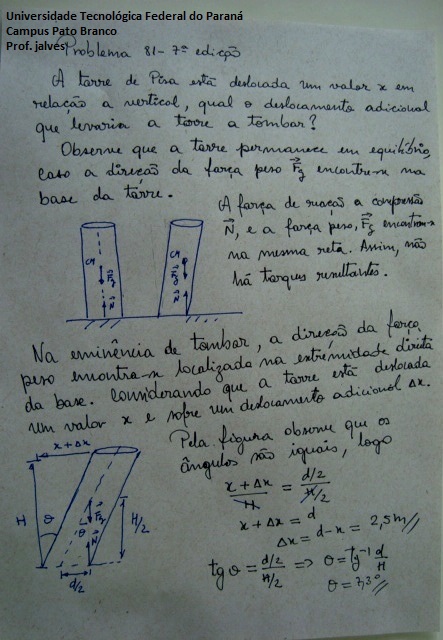 Universidade Tecnológica Federal do Paraná
Campus Pato Branco
Prof. jalves
Problema 81 - 7ª edição
A torre de Pisa está deslocada um valor x em
relação a vertical, qual o deslocamento adicional
que levaria a torre a tombar?
Observe que a torre permanece em equilíbrio,
caso a direção da força peso F⃗g encontre-se na
base da torre.
A força de reação a compressão
N⃗, e a força peso, F⃗g encontram-se
na mesma reta. Assim, não
há torques resultantes.
CM
F⃗g
N⃗
CM
F⃗g
N⃗
Na eminência de tombar, a direção da força
peso encontra-se localizada na extremidade direita
da base. Considerando que a torre está deslocada
um valor x e sofre um deslocamento adicional Δx.
Pela figura observe que os
ângulos são iguais, logo
x+Δx
H
θ
F⃗g
θ
N⃗
H/2
d/2
x + Δx / H = d/2 / H/2
x + Δx = d
Δx = d-x = 2,5m//
tg θ = d/2 / H/2 => θ = tg⁻¹ d/H
θ = 7,3°//